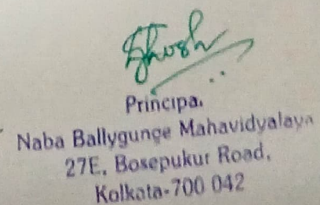 Ghosh
Principal
Naba Ballygunge Mahavidyalaya
27E, Bosepukur Road,
Kolkata-700 042